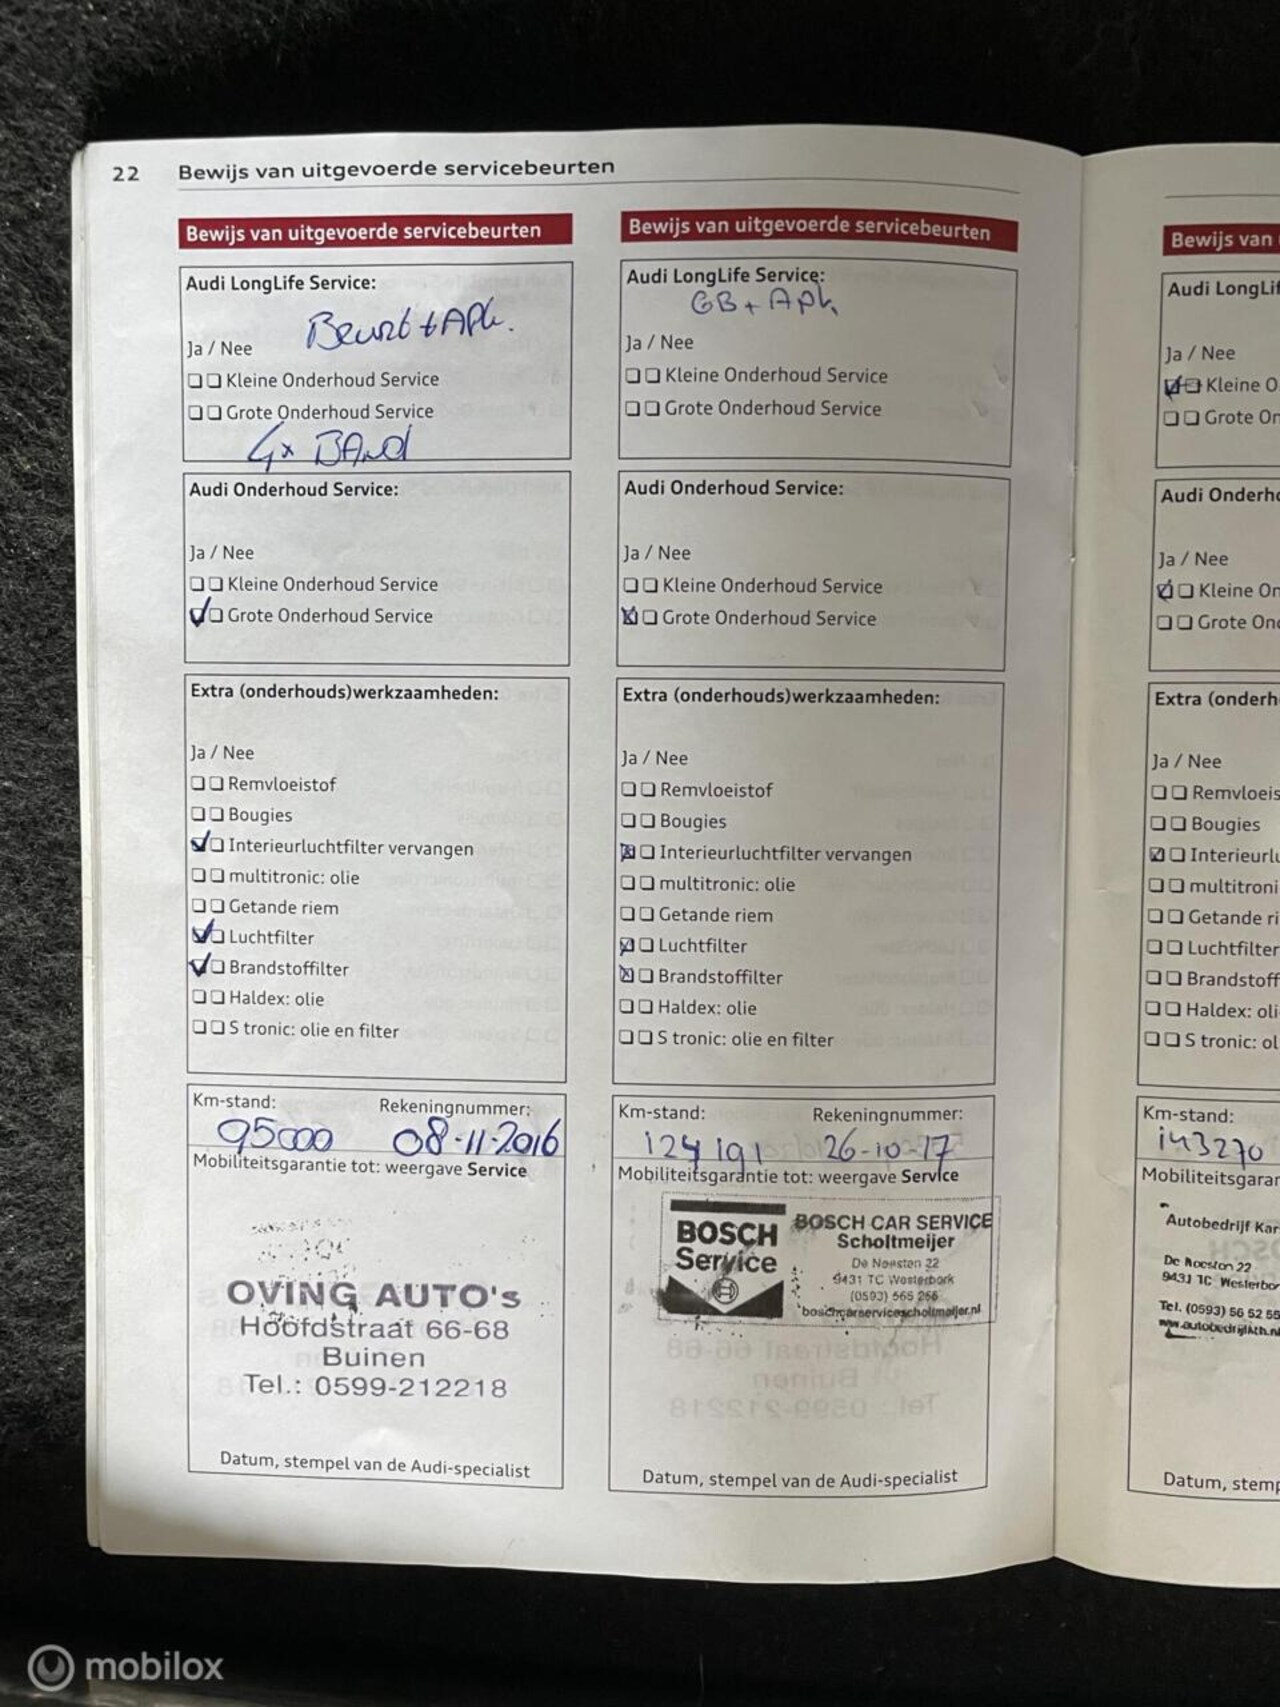 22 Bewijs van uitgevoerde servicebeurten
Bewijs van uitgevoerde servicebeurten
Audi LongLife Service:
Beurt + APk.
Ja / Nee
Kleine Onderhoud Service
Grote Onderhoud Service
4x BAnd
Audi Onderhoud Service:
Ja / Nee
Kleine Onderhoud Service
Grote Onderhoud Service
Extra (onderhouds)werkzaamheden:
Ja / Nee
Remvloeistof
Bougies
Interieurluchtfilter vervangen
multitronic: olie
Getande riem
Luchtfilter
Brandstoffilter
Haldex: olie
S tronic: olie en filter
Km-stand: Rekeningnummer:
95000 08-11-2016
Mobiliteitsgarantie tot: weergave Service
OVING AUTO's
Hoofdstraat 66-68
Buinen
Tel.: 0599-212218
Datum, stempel van de Audi-specialist
Bewijs van uitgevoerde servicebeurten
Audi LongLife Service:
GB + APk
Ja / Nee
Kleine Onderhoud Service
Grote Onderhoud Service
Audi Onderhoud Service:
Ja / Nee
Kleine Onderhoud Service
Grote Onderhoud Service
Extra (onderhouds)werkzaamheden:
Ja / Nee
Remvloeistof
Bougies
Interieurluchtfilter vervangen
multitronic: olie
Getande riem
Luchtfilter
Brandstoffilter
Haldex: olie
S tronic: olie en filter
Km-stand: Rekeningnummer:
124191 26-10-17
Mobiliteitsgarantie tot: weergave Service
BOSCH
Service
BOSCH CAR SERVICE
Scholtmeijer
De Noesten 22
9431 TC Westerbork
(0593) 565 256
boschcarservicescholtmeijer.nl
Datum, stempel van de Audi-specialist
Bewijs van
Audi LongLif
Ja / Nee
Kleine O
Grote On
Audi Onderho
Ja / Nee
Kleine On
Grote Ond
Extra (onderh
Ja / Nee
Remvloeis
Bougies
Interieurlu
multitroni
Getande ri
Luchtfilter
Brandstoff
Haldex: oli
S tronic: ol
Km-stand:
143270
Mobiliteitsgaran
Autobedrijf Kar
De Noesten 22
9431 TC Westerbor
Tel. (0593) 56 52 55
Datum, stemp
mobilox